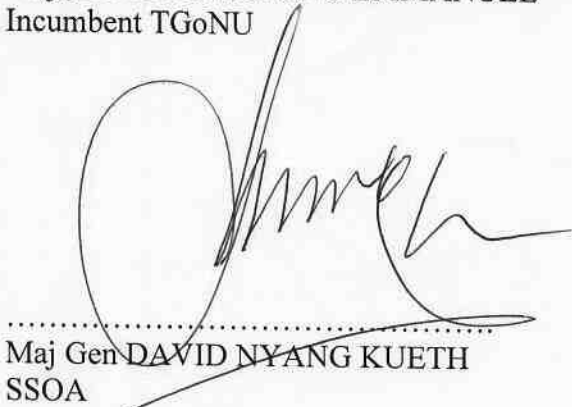 Incumbent TGoNU
Maj Gen DAVID NYANG KUETH
SSOA